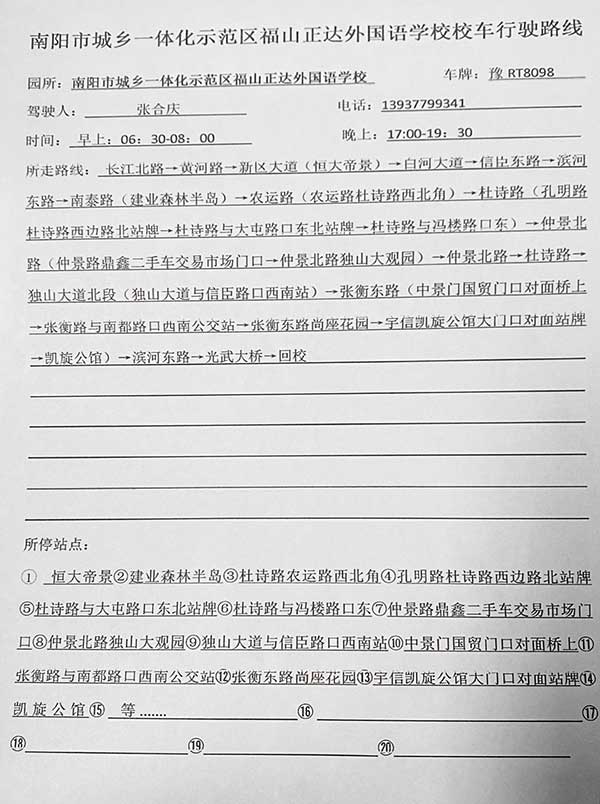 南阳市城乡一体化示范区福山正达外国语学校校车行驶路线
园所：南阳市城乡一体化示范区福山正达外国语学校 车牌：豫 RT8098
驾驶人： 张合庆 电话：13937799341
时间： 早上：06：30-08：00 晚上：17:00-19：30
所走路线： 长江北路→黄河路→新区大道（恒大帝景）→白河大道→信臣东路→滨河
东路→南泰路（建业森林半岛）→农运路（农运路杜诗路西北角）→杜诗路（孔明路
杜诗路西边路北站牌→杜诗路与大屯路口东北站牌→杜诗路与冯楼路口东）→仲景北
路（仲景路鼎鑫二手车交易市场门口→仲景北路独山大观园）→仲景北路→杜诗路→
独山大道北段（独山大道与信臣路口西南站）→张衡东路（中景门国贸门口对面桥上
→张衡路与南都路口西南公交站→张衡东路尚座花园→宇信凯旋公馆大门口对面站牌
→凯旋公馆）→滨河东路→光武大桥→回校
所停站点：
① 恒大帝景②建业森林半岛③杜诗路农运路西北角④孔明路杜诗路西边路北站牌
⑤杜诗路与大屯路口东北站牌⑥杜诗路与冯楼路口东⑦仲景路鼎鑫二手车交易市场门
口⑧仲景北路独山大观园⑨独山大道与信臣路口西南站⑩中景门国贸门口对面桥上⑪
张衡路与南都路口西南公交站⑫张衡东路尚座花园⑬宇信凯旋公馆大门口对面站牌⑭
凯旋公馆⑮ 等....... ⑯ ⑰
⑱ ⑲ ⑳